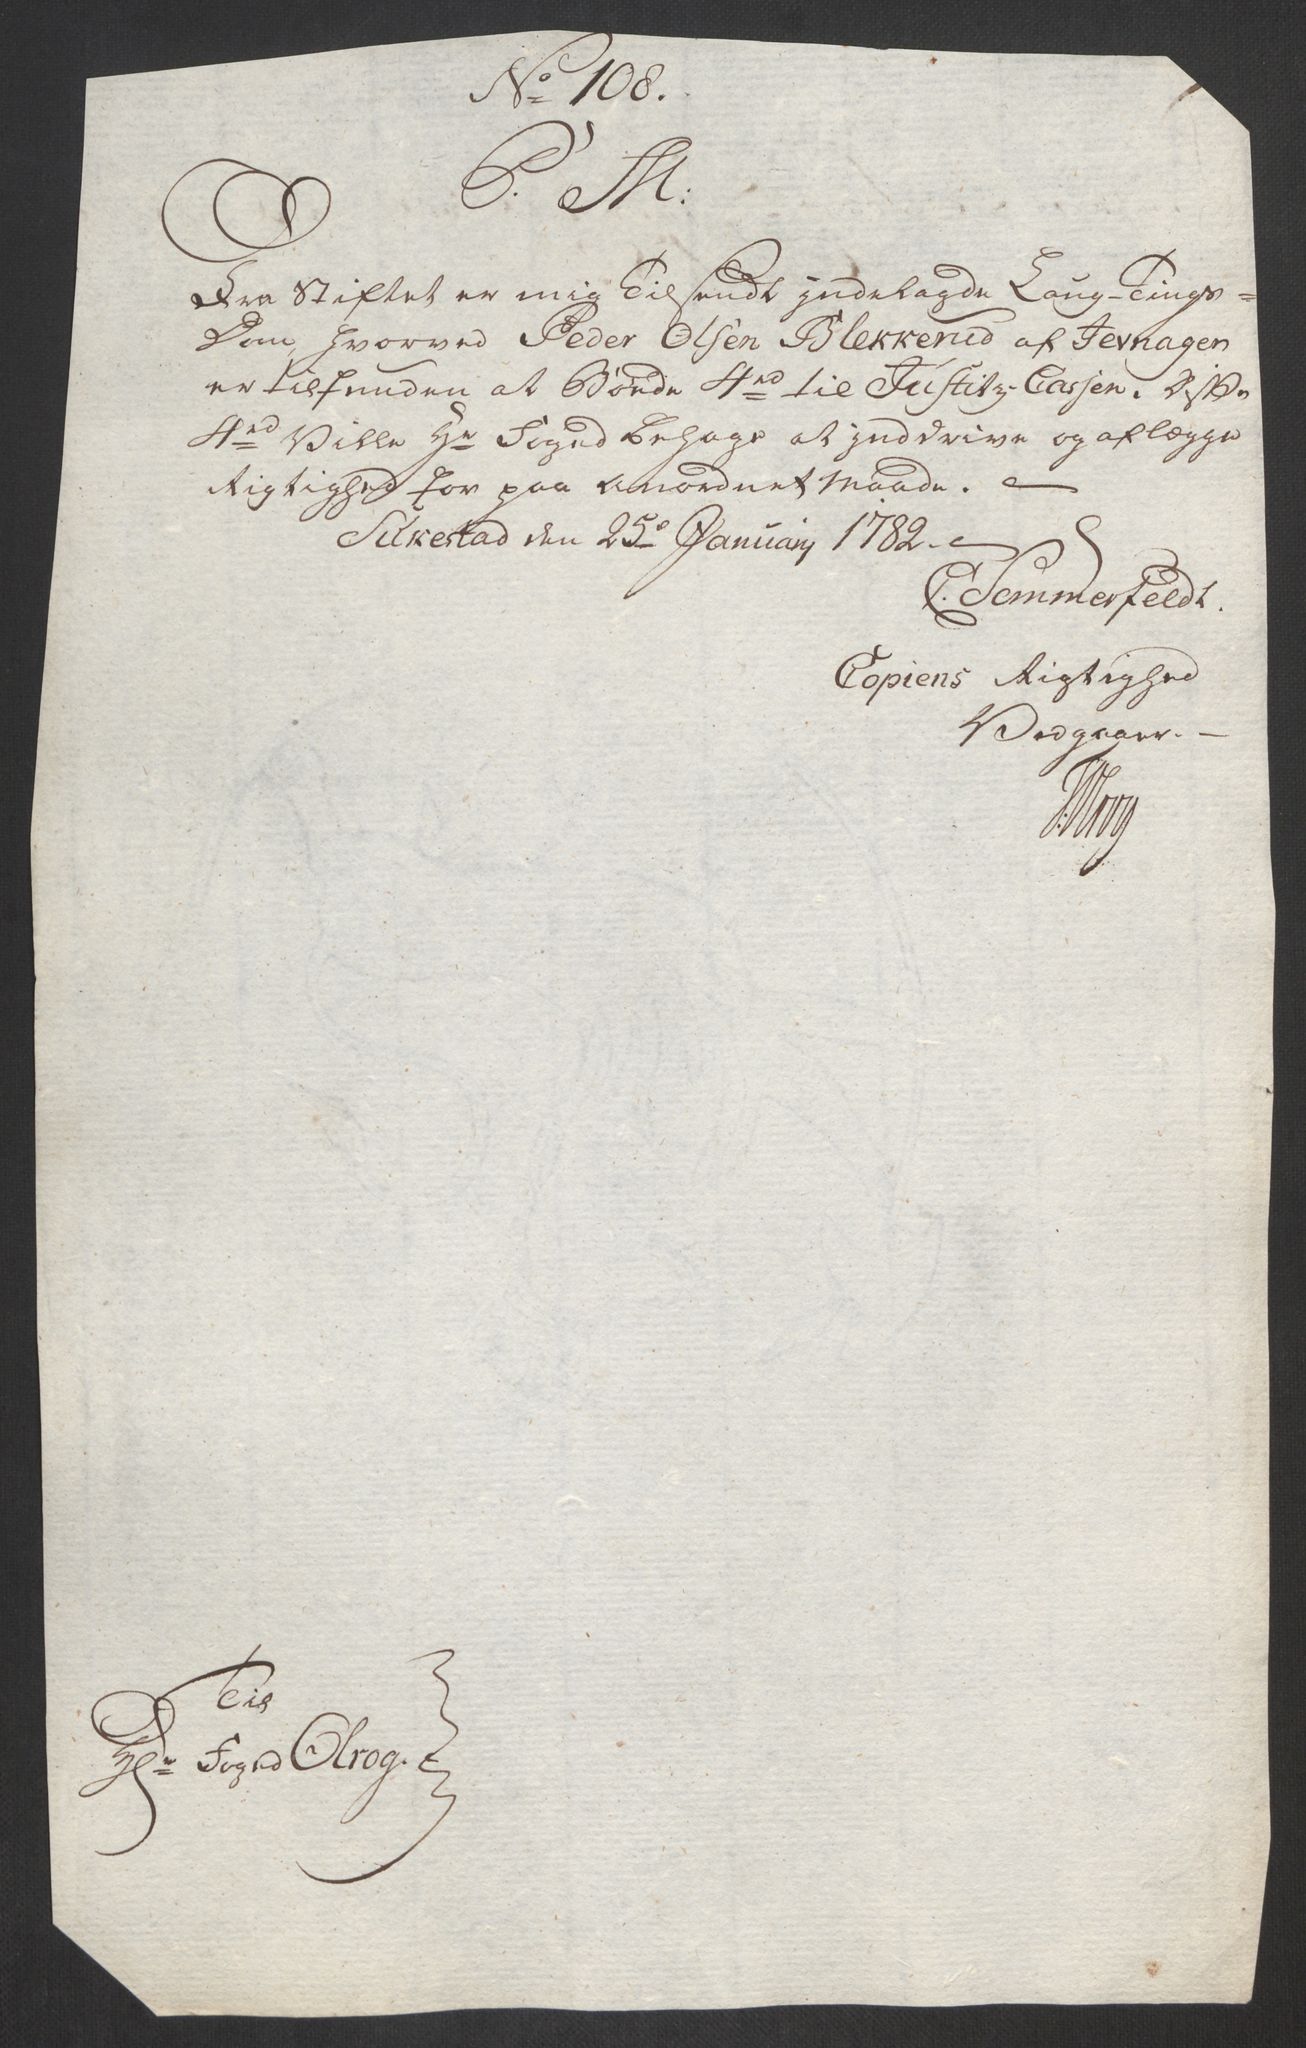 No 108.
P. M:
Fra Stiftet er mig Tilsendt indelagde Laug-Tings-
Dom, hvorved Peder Olsen Blekkerud af Jevnager
er tilfunden at Bøede 4rd til Justitz-Cassen. Diße
4rd Ville Hr Foged behage at inddrive og aflægge
Rigtighed for paa anordnet Maade.
Silkestad den 25e Januarij 1782.
C. Semmerfeldt.
Copiens Rigtighed
Vedgaaer.
Til
Hr Foged Olrog.